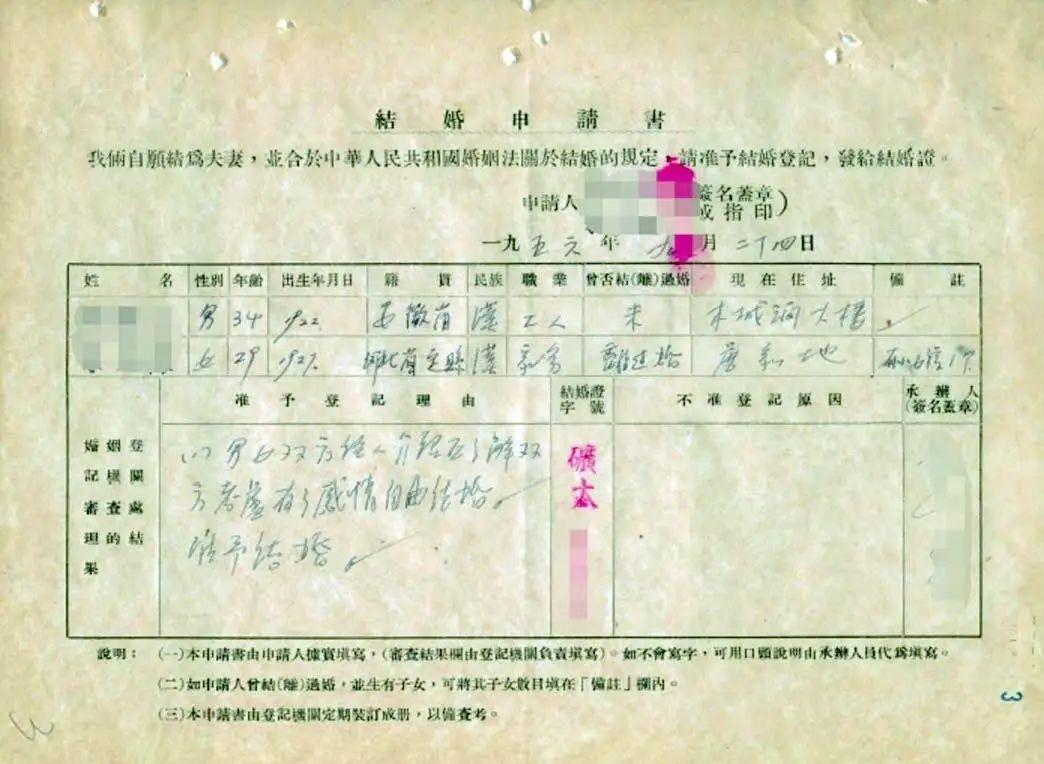 結婚申請書
我倆自願結爲夫妻，並合於中華人民共和國婚姻法關於結婚的規定，請准予結婚登記，發給結婚證。
申請人
簽名蓋章
或指印)
一九五六年九月二十四日
姓名 性別 年齡 出生年月日 籍貫 民族 職業 曾否結(離)過婚 現在住址 備註
男 34 1922. 安徽省 漢 工人 未 木城澗大樓
女 29 1927. 河北省定縣 漢 家务 離过婚
准予登記理由 結婚證字號 不准登記原因 承辦人(簽名蓋章)
婚姻登記機關審查處理的結果
男女双方經人介紹互了解双
方老蘆有了感情自由结婚。
准予结婚。
礦太
說明：(一)本申請書由申請人據實填寫，(審查結果欄由登記機關負責填寫)。如不會寫字，可用口頭說明由承辦人員代爲填寫。
(二)如申請人曾結(離)過婚，並生有子女，可將其子女數目填在「備註」欄內。
(三)本申請書由登記機關定期裝訂成册，以備查考。
3